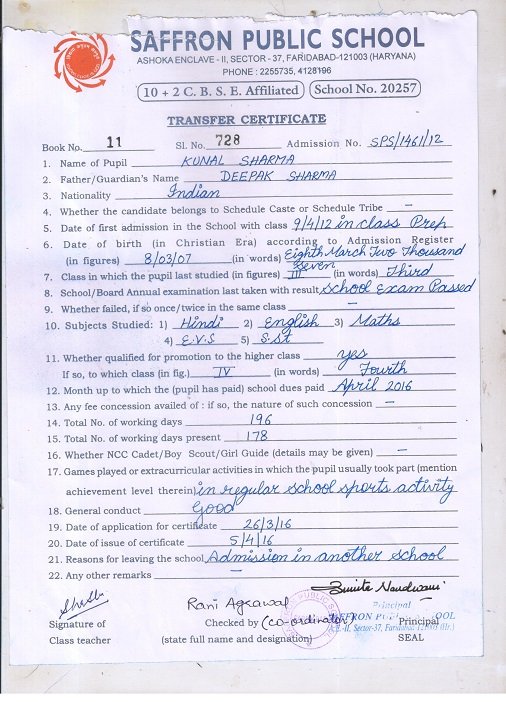 SAFFRON PUBLIC SCHOOL
ASHOKA ENCLAVE - II, SECTOR - 37, FARIDABAD-121003 (HARYANA)
PHONE : 2255735, 4128196
10 + 2 C. B. S. E. Affiliated School No. 20257
TRANSFER CERTIFICATE
Book No. 11 Sl. No. 728 Admission No. SPS/1461/12
1. Name of Pupil KUNAL SHARMA
2. Father/Guardian's Name DEEPAK SHARMA
3. Nationality Indian
4. Whether the candidate belongs to Schedule Caste or Schedule Tribe —
5. Date of first admission in the School with class 9/4/12 in class Prep
6. Date of birth (in Christian Era) according to Admission Register
(in figures) 8/03/07 (in words) Eighth March Two Thousand Seven
7. Class in which the pupil last studied (in figures) III (in words) Third
8. School/Board Annual examination last taken with result School Exam Passed
9. Whether failed, if so once/twice in the same class —
10. Subjects Studied: 1) Hindi 2) English 3) Maths
4) E.V.S 5) S.St
11. Whether qualified for promotion to the higher class yes
If so, to which class (in fig.) IV (in words) Fourth
12. Month up to which the (pupil has paid) school dues paid April 2016
13. Any fee concession availed of : if so, the nature of such concession —
14. Total No. of working days 196
15. Total No. of working days present 178
16. Whether NCC Cadet/Boy Scout/Girl Guide (details may be given) —
17. Games played or extracurricular activities in which the pupil usually took part (mention
achievement level therein) in regular school sports activity
18. General conduct Good
19. Date of application for certificate 26/3/16
20. Date of issue of certificate 5/4/16
21. Reasons for leaving the school Admission in another school
22. Any other remarks —
Rani Agrawal
Principal
Signature of Checked by (co-ordinator) Principal
Class teacher (state full name and designation) SEAL